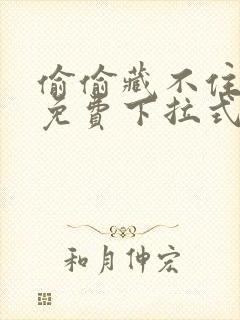 偷偷藏不住
免費下拉式
和月伸宏